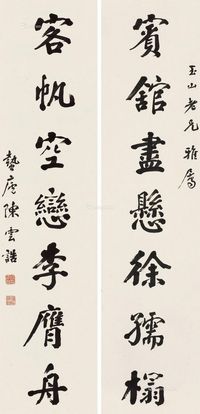 玉山老兄雅属
賓館盡懸徐孺榻
客帆空戀李膺舟
蟄廬陳雲誥